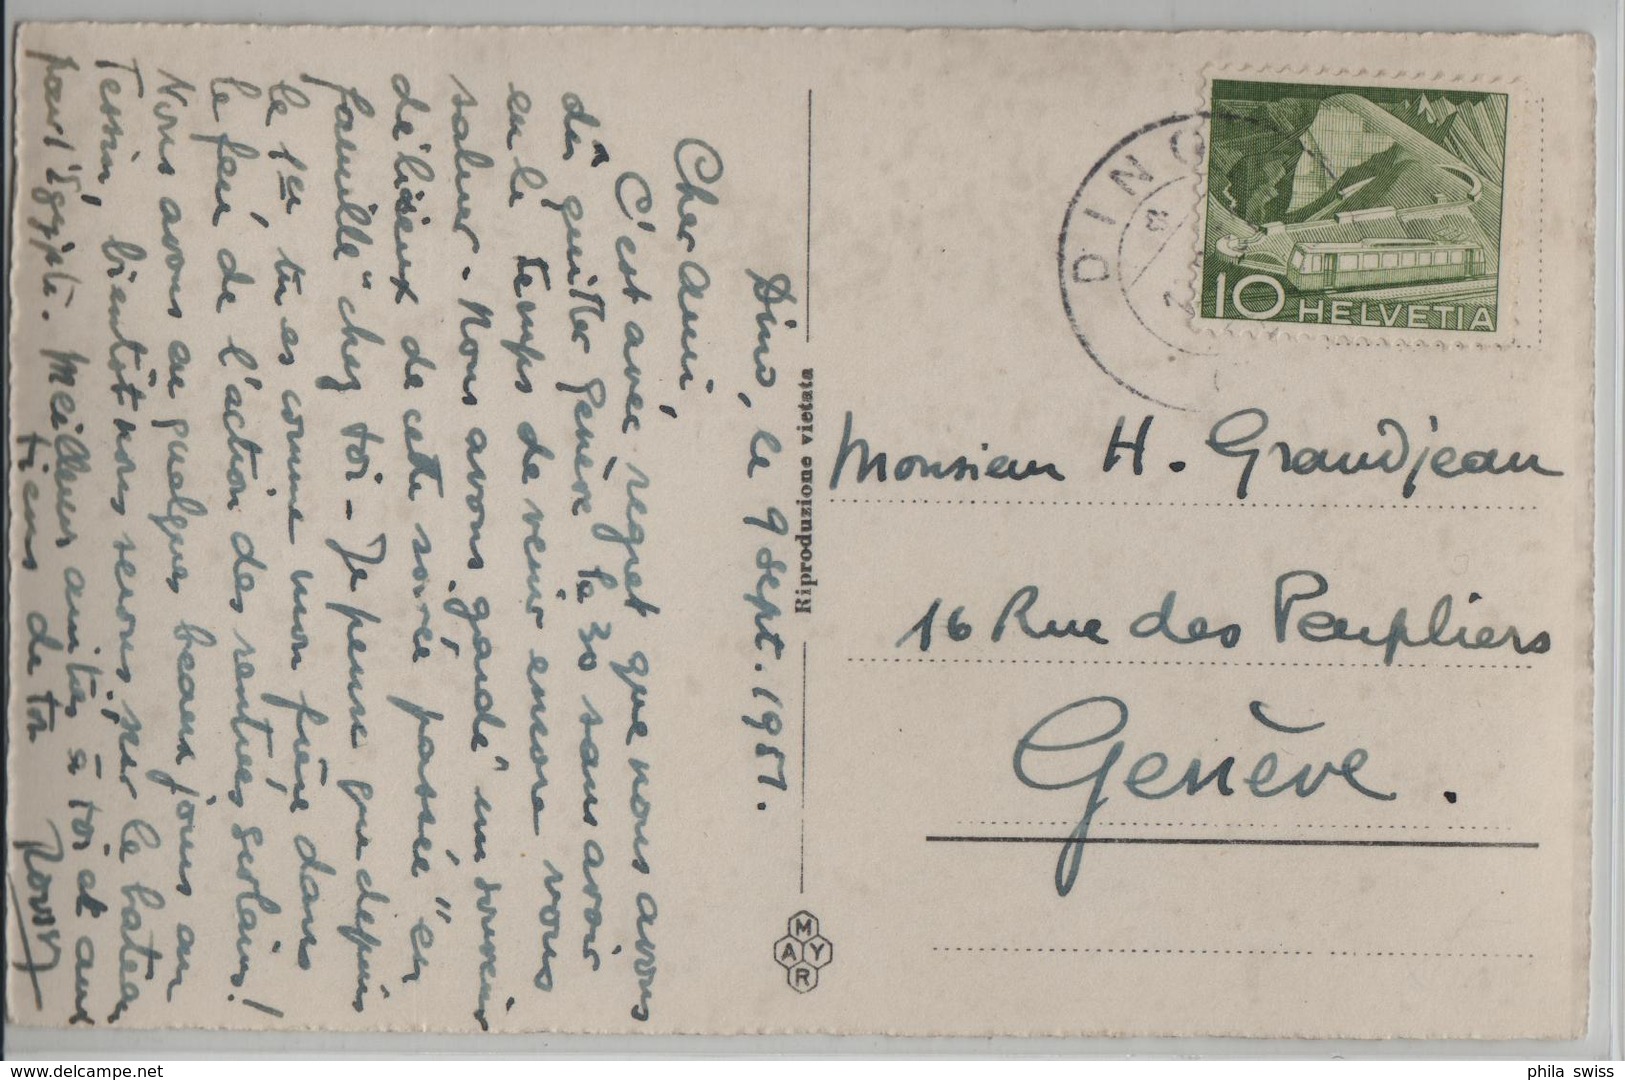 Dino, le 9 sept. 1951.
Cher ami,
C'est avec regret que nous avons
dû quitter Genève le 30 sans avoir
eu le temps de venir encore vous
saluer. Nous avons gardé un souvenir
délicieux de cette soirée passée "en
famille" chez toi - Je pense que depuis
le 1er, tu es comme mon frère dans
le feu de l'action des rentrées scolaires!
Nous avons eu quelques beaux jours au
Tessin, bientôt nous serons sur le bateau
pour l'Egypte. Meilleures amitiés à toi et aux
tiens de ton
Riproduzione vietata
MAYR
DINO
10 HELVETIA
Monsieur H. Grandjean
16 Rue des Peupliers
Genève.
phila swiss